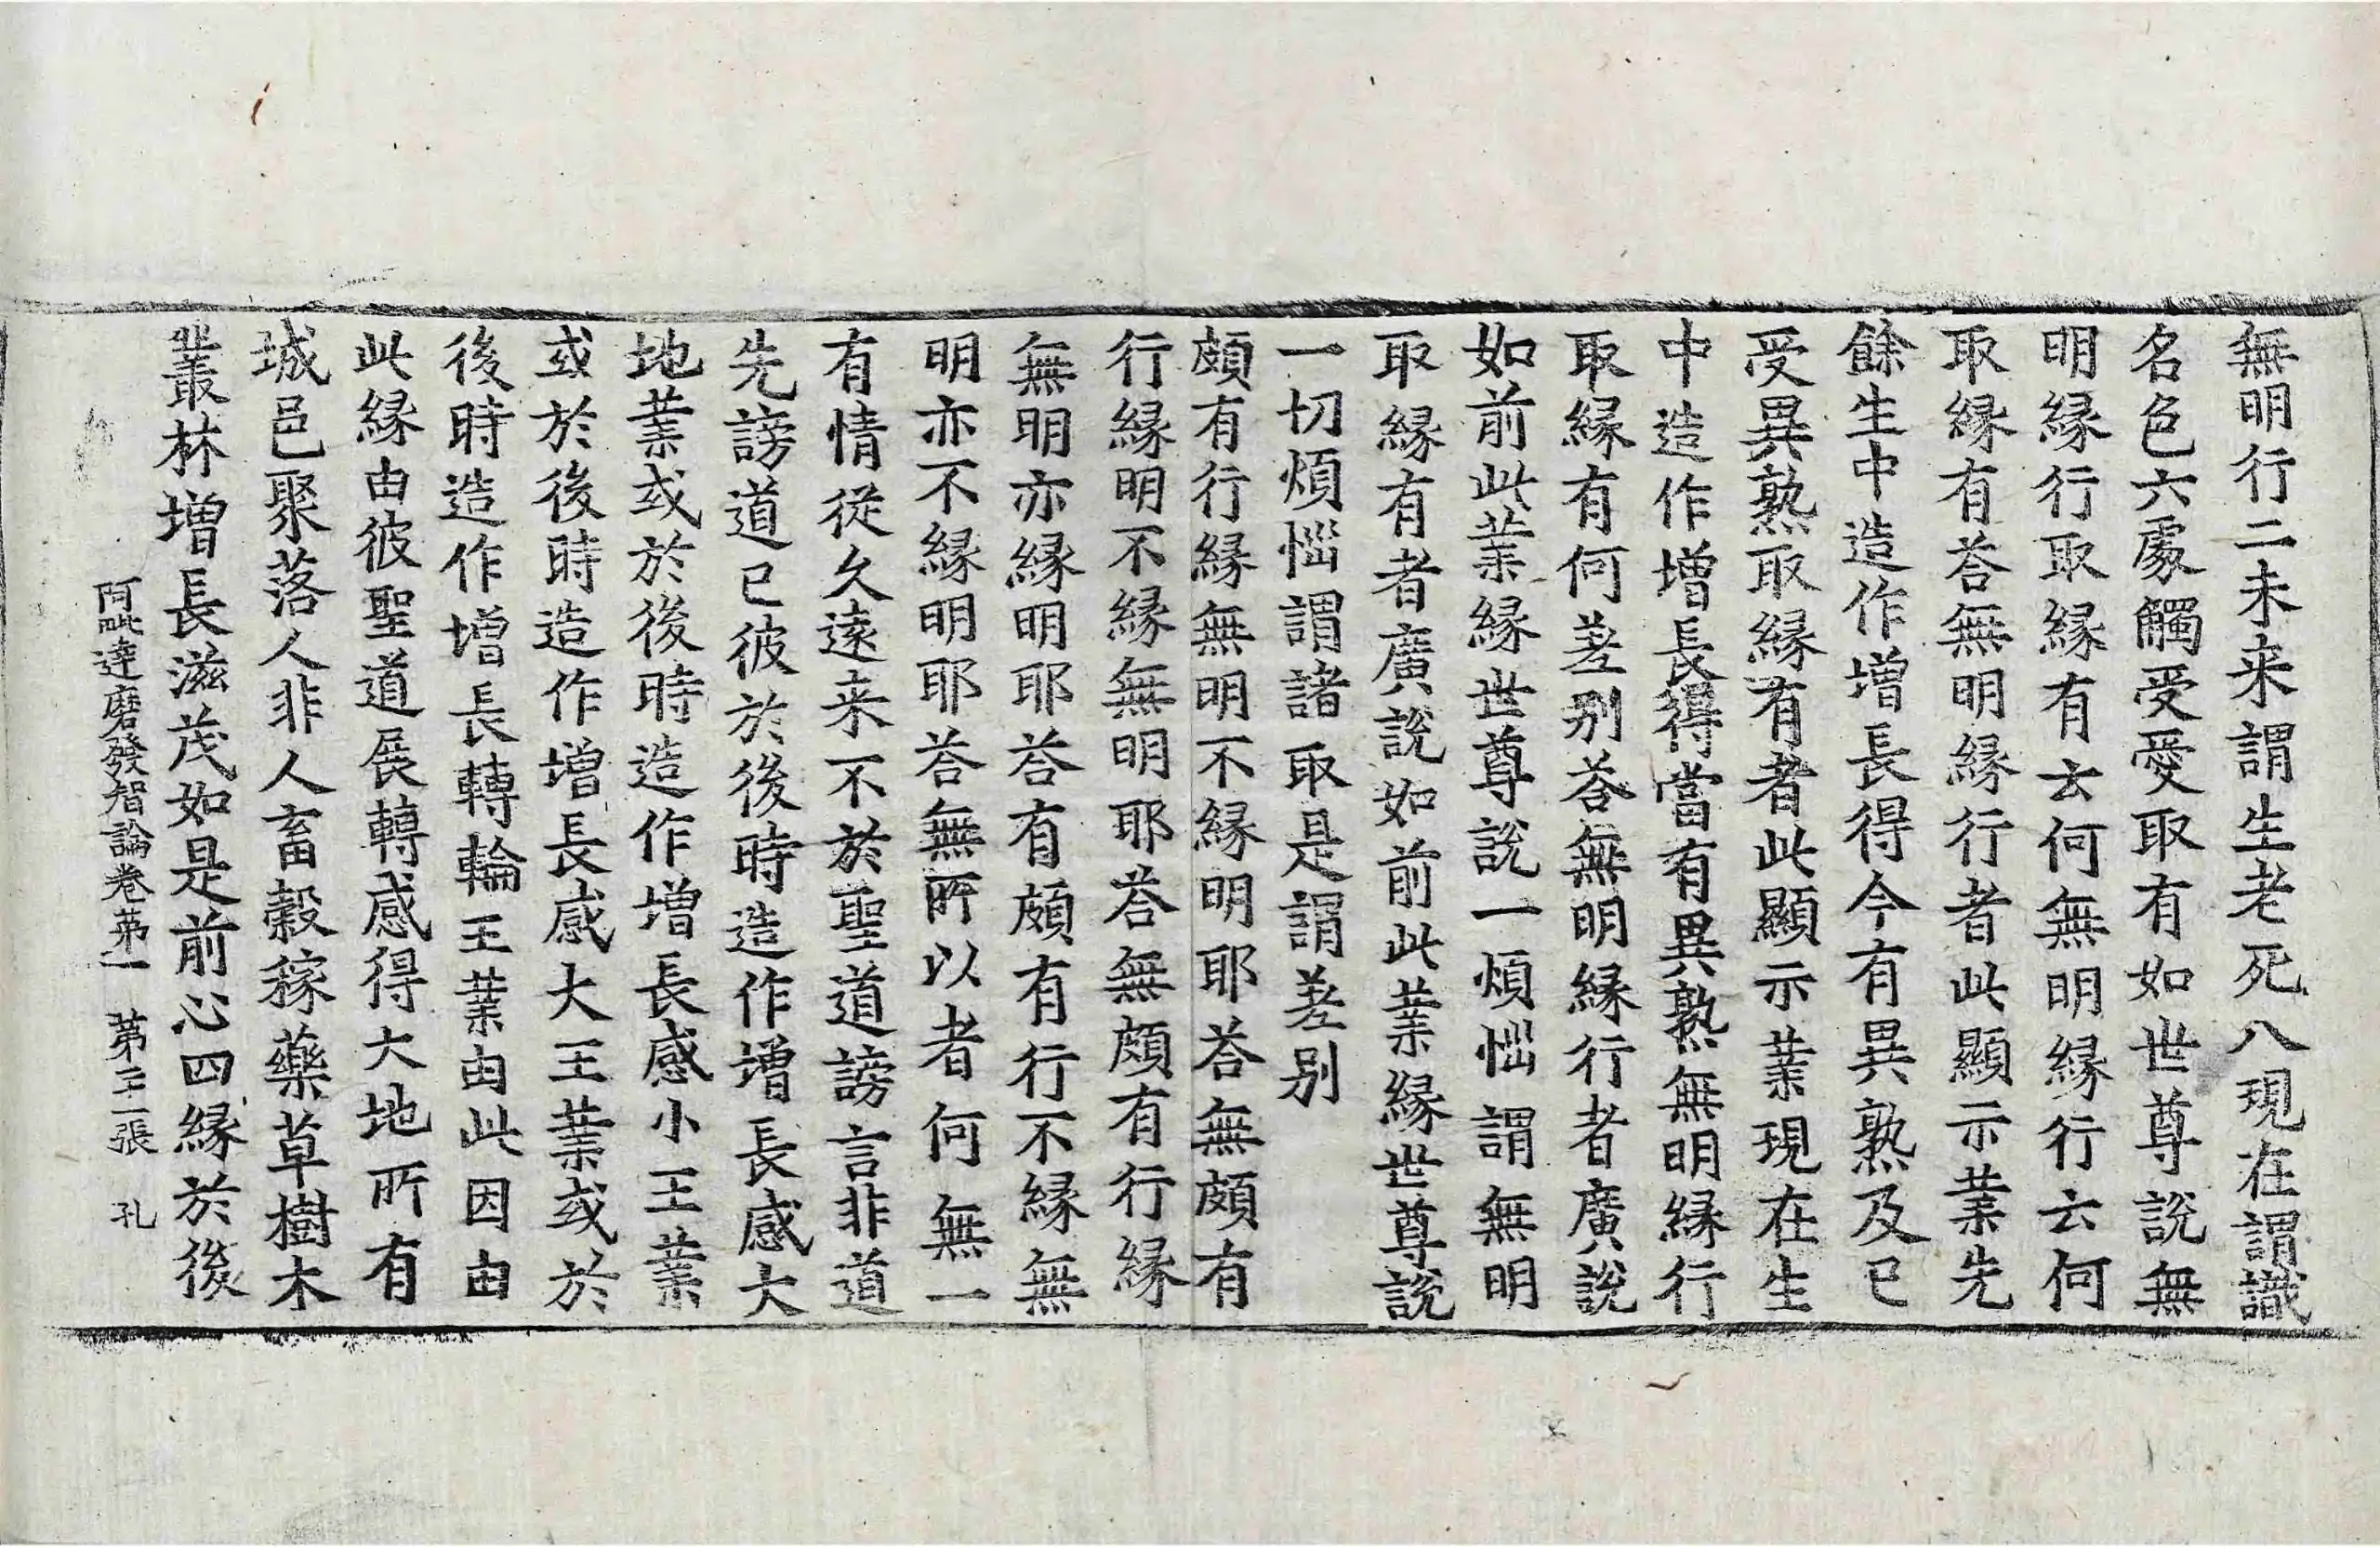 無明行二未来謂生老死八現在謂識
名色六處觸受愛取有如世尊説無
明縁行取縁有云何無明縁行云何
取縁有荅無明縁行者此顯示業先
餘生中造作增長得今有異熟及已
受異熟取縁有者此顯示業現在生
中造作增長得當有異熟無明縁行
取縁有何差别荅無明縁行者廣説
如前此業縁世尊説一煩惱謂無明
取縁有者廣説如前此業縁世尊説
一切煩惱謂諸取是謂差别
頗有行縁無明不縁明耶荅無頗有
行縁明不縁無明耶荅無頗有行縁
無明亦縁明耶荅有頗有行不縁無
明亦不縁明耶荅無所以者何無一
有情從久遠来不於聖道謗言非道
先謗道已彼於後時造作增長感大
地業或於後時造作增長感小王業
或於後時造作增長感大王業或於
後時造作增長轉輪王業由此因由
此縁由彼聖道展轉感得大地所有
城邑聚落人非人畜穀稼藥草樹木
叢林增長滋茂如是前心四縁於後
阿毗達磨發智論卷苐一 苐二張 孔